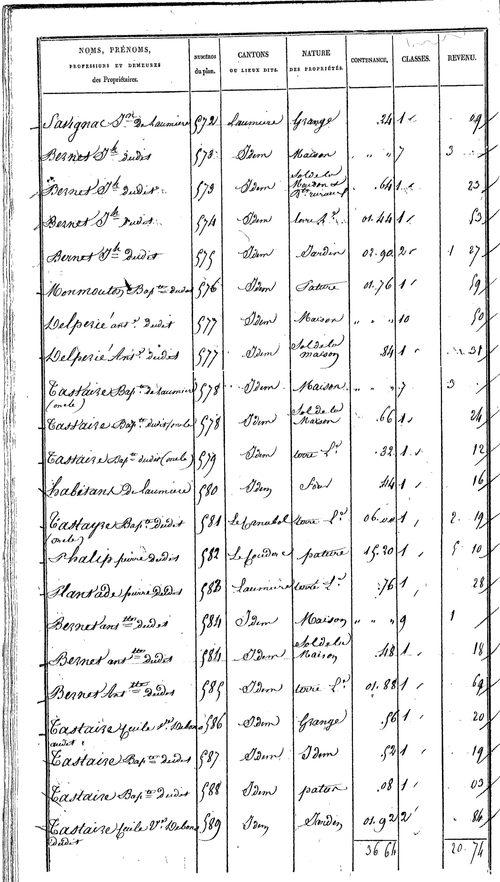 NOMS, PRÉNOMS, PROFESSIONS ET DEMEURES des Propriétaires. | NUMÉROS du plan. | CANTONS OU LIEUX DITS. | NATURE DES PROPRIÉTÉS. | CONTENANCE. | CLASSES. | REVENU.
Savignac Jn de Laumiere 572 Laumiere Grange .24 1 09
Bernet Jh dudit 573 Idem Maison " " " 7 3
Bernet Jh dudit 573 Idem Sol de la Maison et .64 1 23
Bernet Jh dudit 574 Idem terre Lr 01.44 1 53
Bernet Jh dudit 575 Idem Jardin 02.90 2 1 27
Monmouton Bapte dudit 576 Idem Pature 01.76 1 59
Delperié ant dudit 577 Idem Maison " " " 10 50
Delperié Ant dudit 577 Idem Sol de la maison .84 1 31
Castaire Bapte de Laumiere (oncle) 578 Idem Maison " " " 7 3
Castaire Bapte dudit (oncle) 578 Idem Sol de la Maison .66 1 24
Castaire Bapte dudit (oncle) 579 Idem terre Lr .32 1 12
habitans de Laumiere 580 Idem Four .44 1 16
Castayre Bapte dudit (oncle) 581 terre Lr 1 2 19
Phalip pierre dudit 582 pature 15.20 1 5 10
Plantade pierre dudit 583 Laumiere terre Lr .76 1 28
Bernet ant dudit 584 Idem Maison " " " 9 1
Bernet ant dudit 584 Idem Sol de la Maison .48 1 18
Bernet Ant dudit 585 Idem terre Lr 01.88 1 69
Castaire dudit 586 Idem Grange .56 1 20
Castaire Bapte dudit 587 Idem Idem .52 1 19
Castaire Bapte dudit 588 Idem patur .08 1 03
Castaire dudit 589 Idem Jardin 01.92 2 84
36 64 20.74